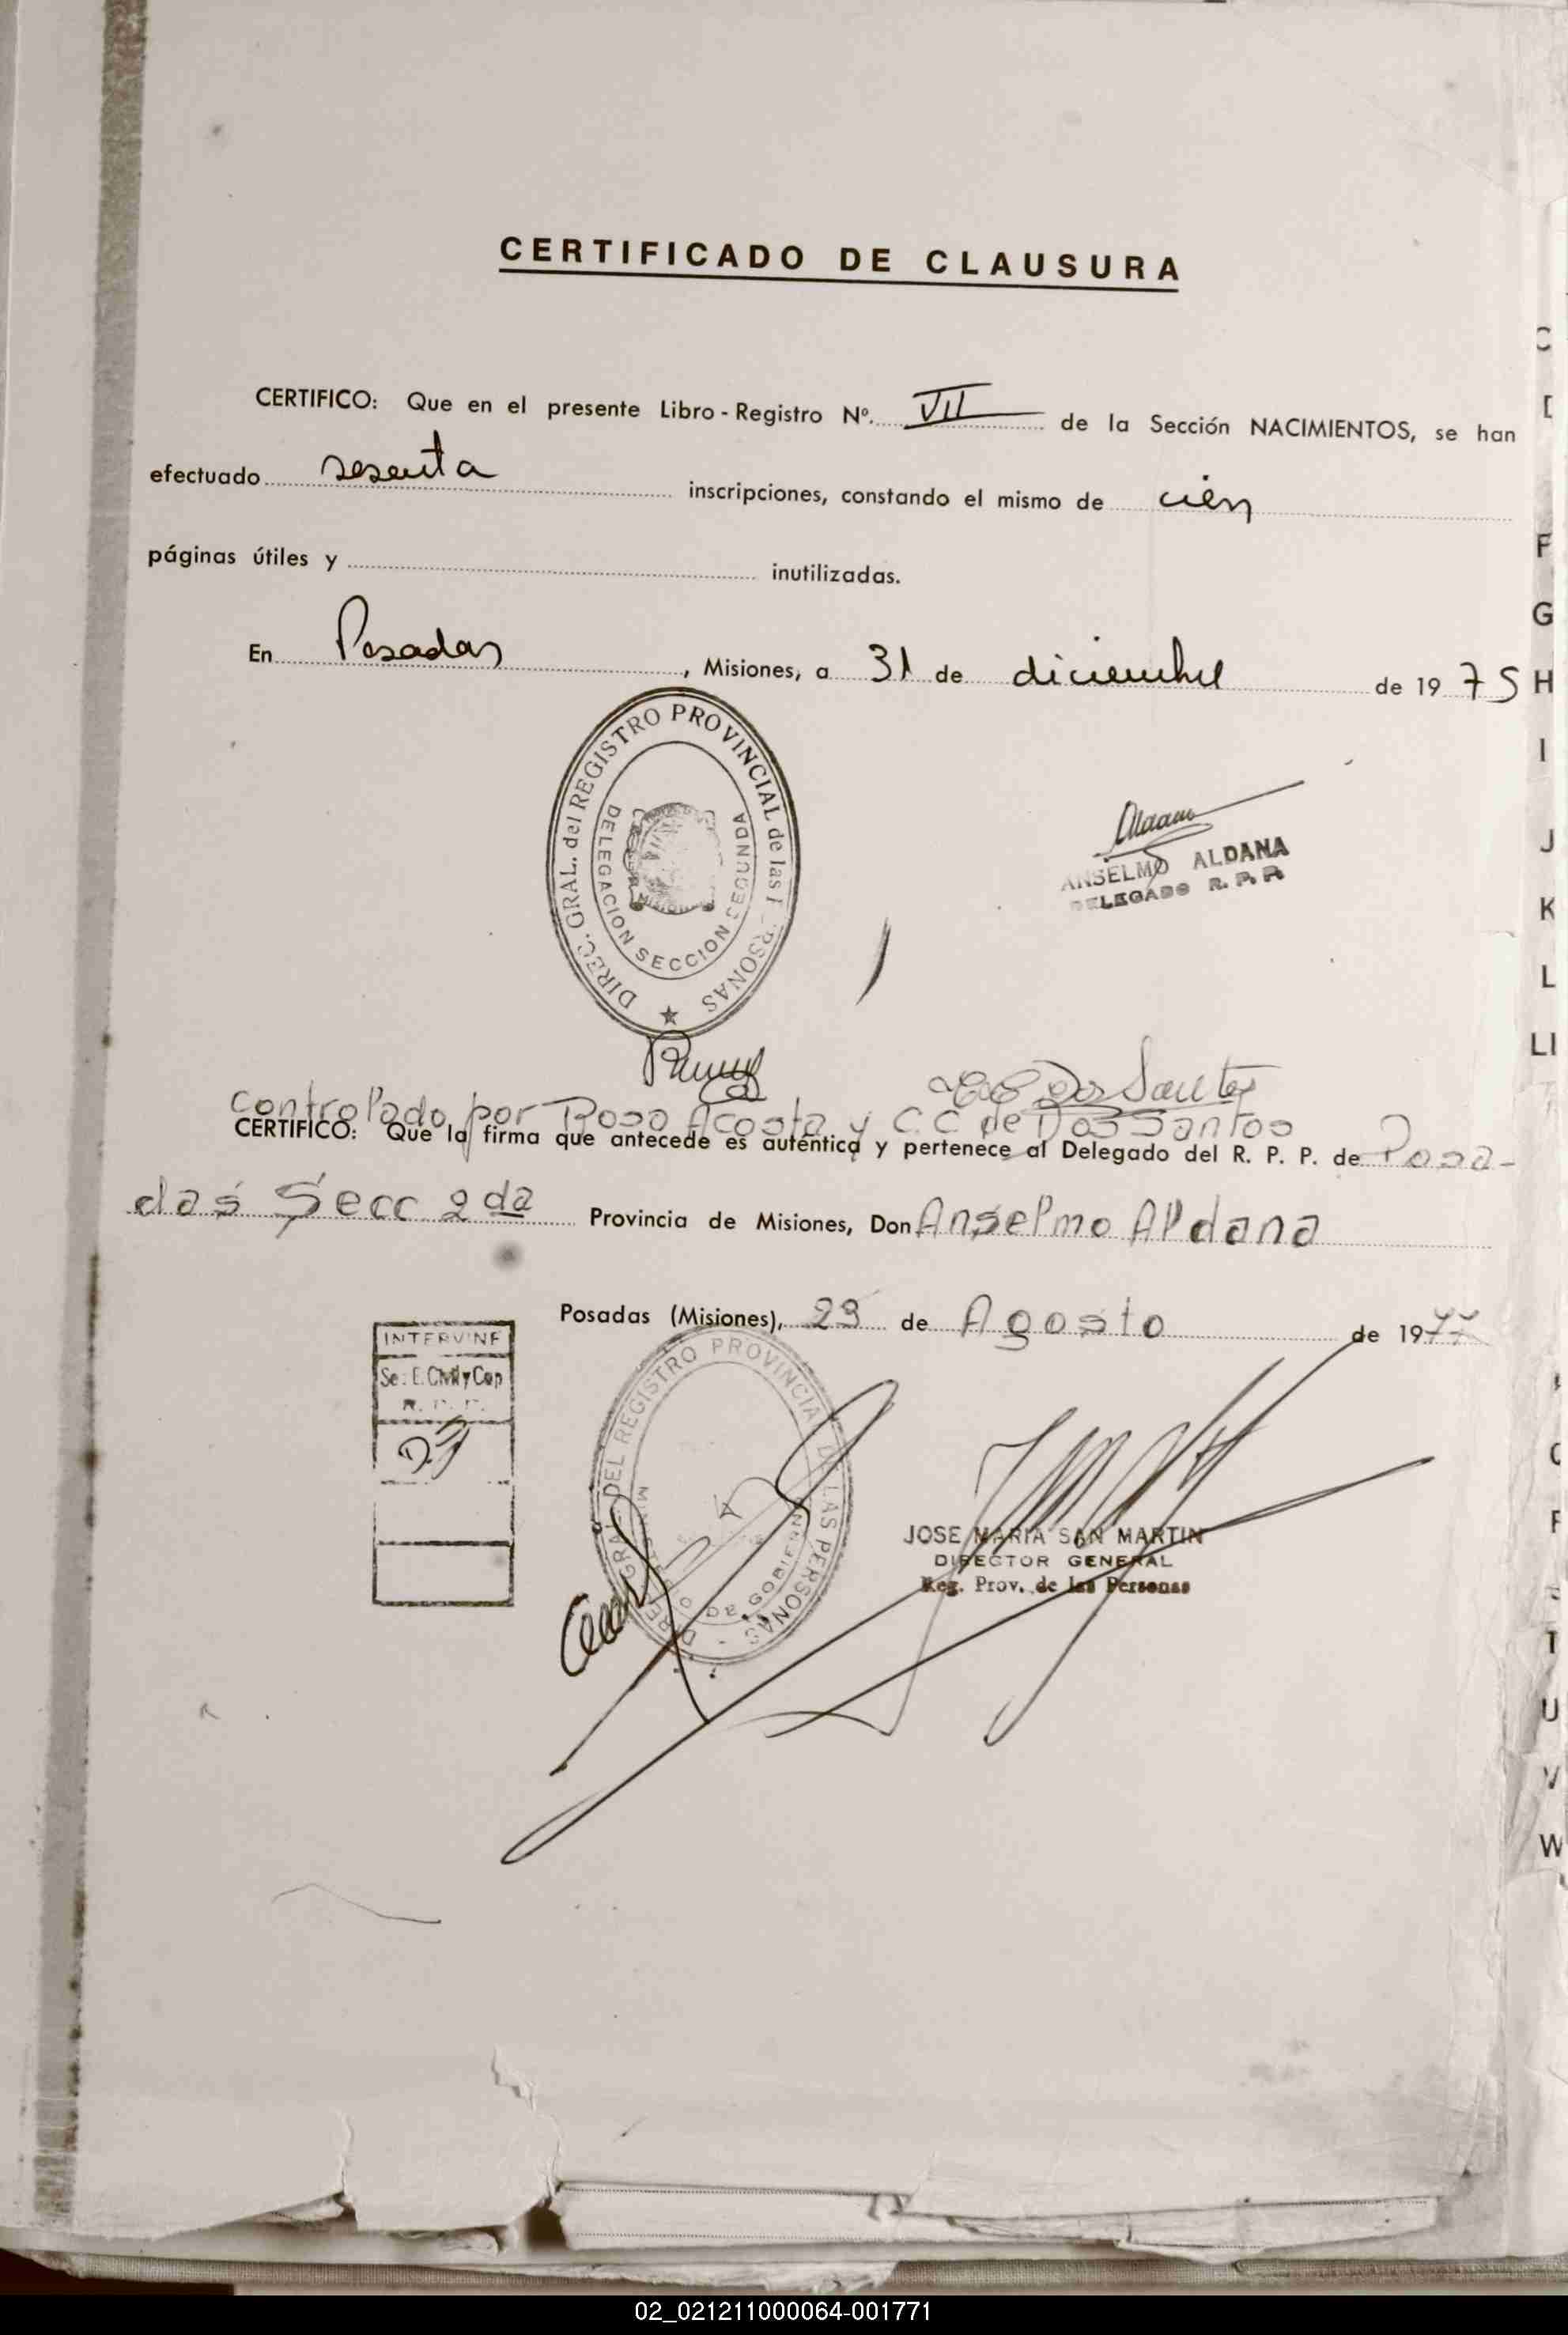 CERTIFICADO DE CLAUSURA
CERTIFICO: Que en el presente Libro - Registro Nº. VII de la Sección NACIMIENTOS, se han
efectuado sesenta inscripciones, constando el mismo de cien
páginas útiles y inutilizadas.
En Posadas, Misiones, a 31 de diciembre de 1975
DIREC. GRAL. del REGISTRO PROVINCIAL de las PERSONAS
DELEGACION SECCION SEGUNDA
MISIONES
ANSELMO ALDANA
DELEGADO R. P. P.
Dos Santos
Controlado por Rosa Acosta y C.C de Dos Santos
CERTIFICO: Que la firma que antecede es auténtica y pertenece al Delegado del R. P. P. de Posa-
das Secc 2da Provincia de Misiones, Don Anselmo Aldana
Posadas (Misiones), 29 de Agosto de 1977
INTERVINE
Sec. E. Civil y Cap
R. P. P.
DIREC. GRAL. DEL REGISTRO PROVINCIAL DE LAS PERSONAS
MINISTERIO DE GOBIERNO
JOSE MARIA SAN MARTIN
DIRECTOR GENERAL
Reg. Prov. de las Personas
C
F
G
H
I
J
K
L
LI
T
U
V
W
02_021211000064-001771